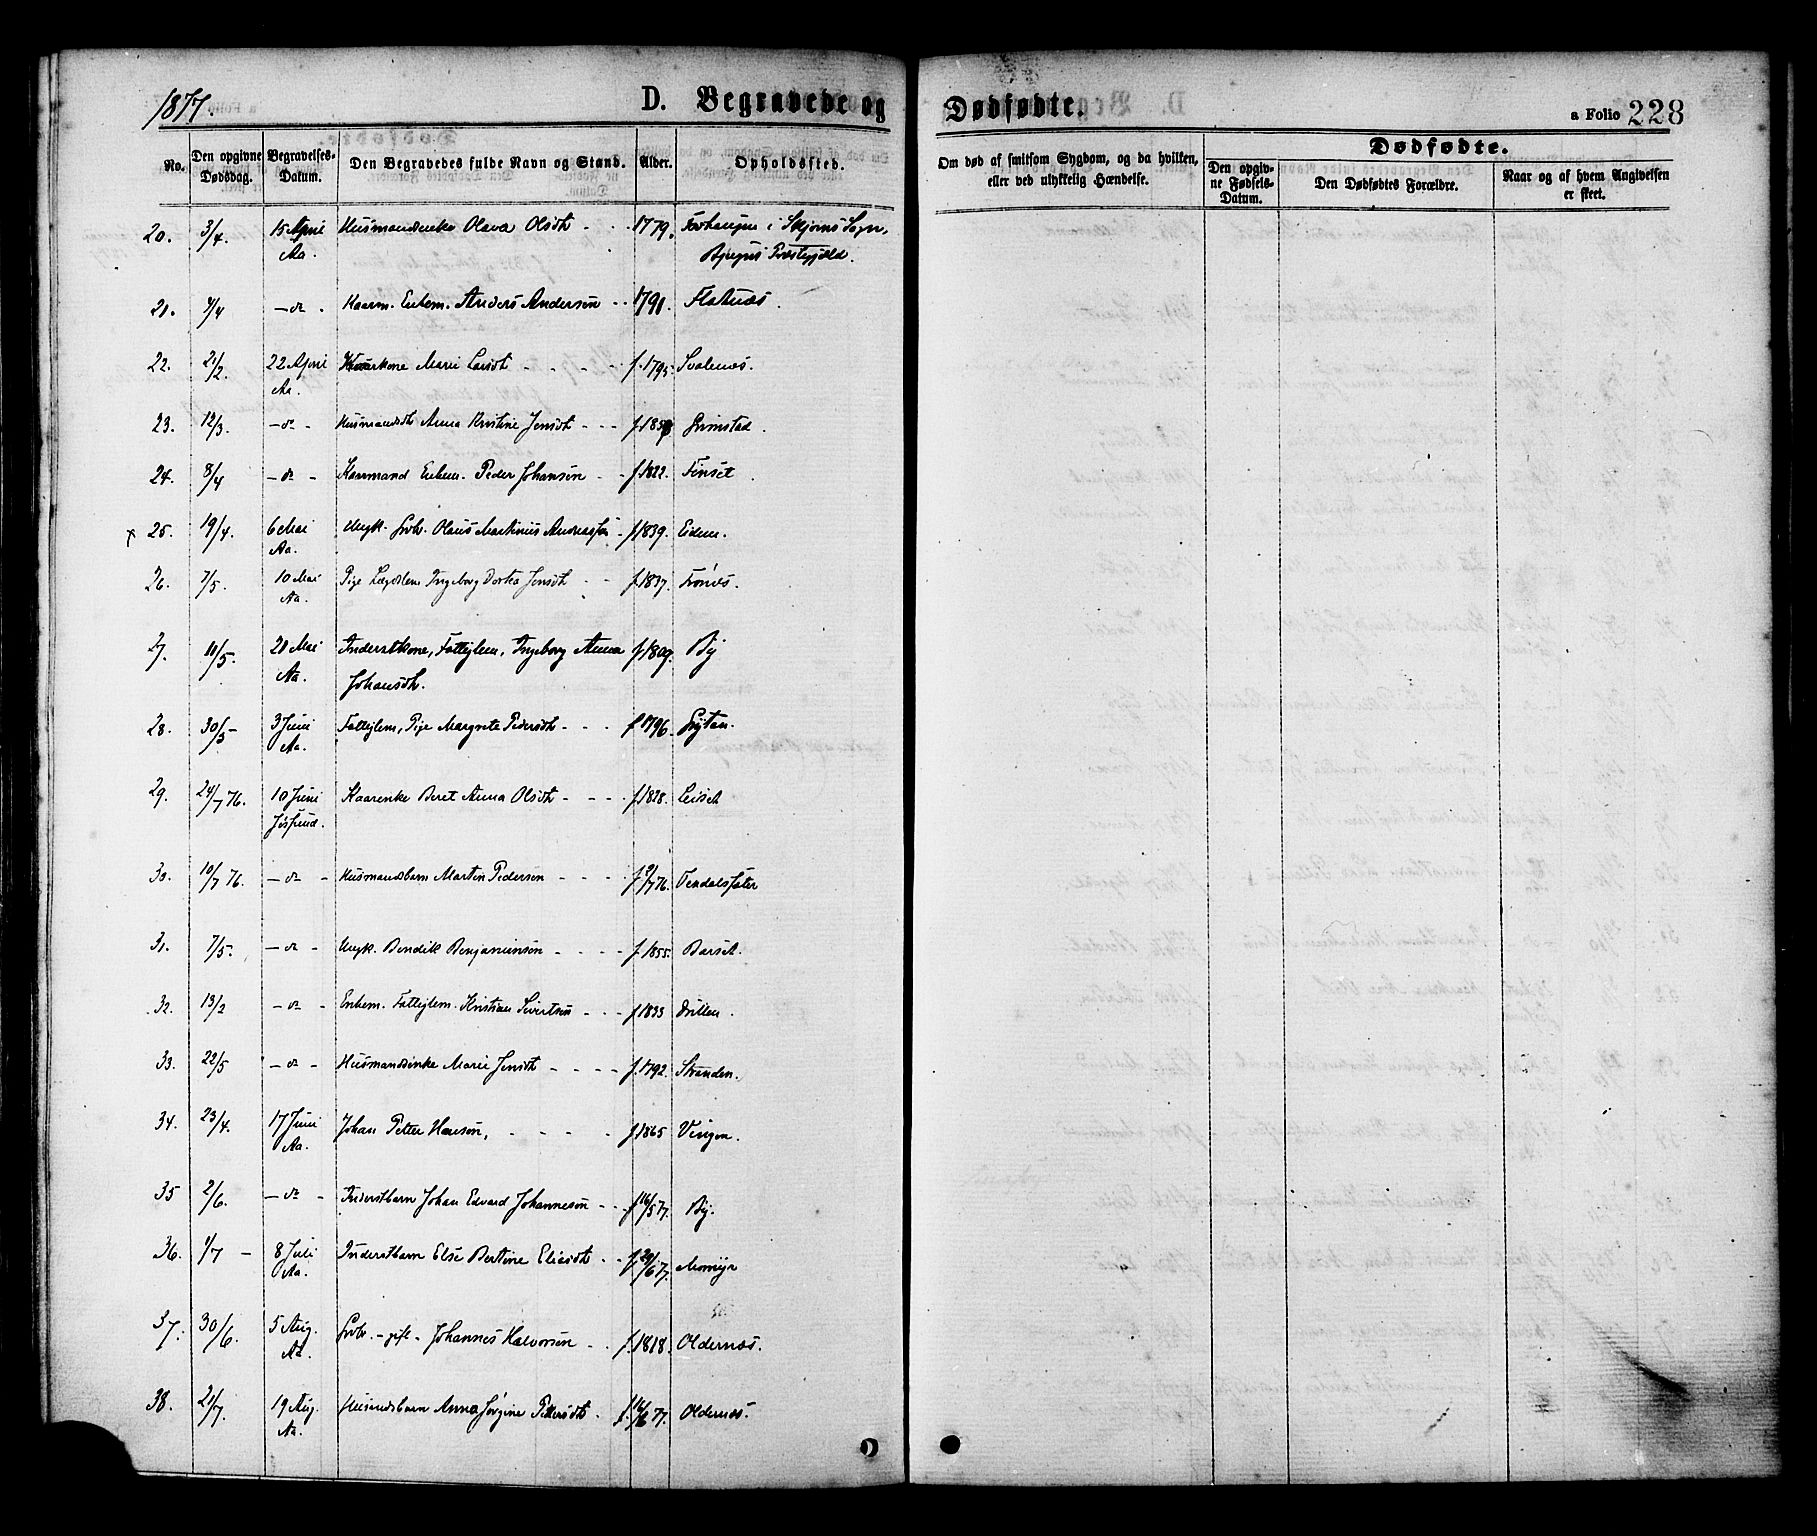 1877.
D. Begravede og Dødfødte.
a Folio 228
No. Den opgivne Dødsdag. Begravelses-Datum. Den Begravedes fulde Navn og Stand. Alder. Opholdssted. Om død af smitsom Sygdom, og da hvilken, eller ved ulykkelig Hændelse. Dødfødte. Den opgivne Fødsels-Datum. Den Dødfødtes Forældre. Naar og af hvem Angivelsen er skeet.
20. 3/4. 15 April Husmandsenke Olava Olsdt - - . 1779. i Skjørns Sogn,
Aa. Præstegjæld.
21. 4/4 -do- . Kaarm. Enkem. Anders Andersen - . 1791. Flatnæs.
22. 21/2. 22 April Kaarkone Marie Larsdt - - - - f. 1795. Svalenæs.
Aa.
23. 12/3. -do- Husmandsdt Anna Kristine Jensdt - - - f. Grimstad.
24. 8/4 -do- - Kaarmand Enkem. Peder Johansen - - f. 1822. Finset.
x 25. 19/4. 6 Mai Ungk. Olaus Martinus f. 1839. Eidem.
Aa.
26. 7/5. 10 Mai Pige Lægdslem Ingeborg Dortea Jensdt - - f. 1837. Frønes.
Aa.
27. 10/5. 20 Mai Inderstkone, Fattiglem, Ingeborg Anna f. 1809. By
Aa. Johansdt.
28. 30/5- 3 Juni Fattiglem, Pige Margrete Pedersdt - - - f. 1796. Grytan.
Aa.
29. 24/7 76. 10 Juni Kaarenke Beret Anna Olsdt - - - . f. 1828. Leiset
Jøssund.
30. 10/7 76. -do- - Husmandsbarn Martin Pedersen - - - - f. 9/7 76. Tendalssæter
31. 7/5. -do- - Ungk. Bendik Benjaminsen - - - - f. 1855. Barset.
32. 13/2 -do- Enkem. Fattiglem. Kristian Sivertsen - - - f. 1833
33. 22/5 -do- - Husmandsenke Marie Jensdt - - - - f. 1792. Stranden.
34. 23/4. 17 Juni Johan Petter Hansen, - - - - f. 1865 Vingen.
Aa.
35 2/6. -do- - Inderstbarn Johan Edvard Johannesen - - f. 16/5 77. By.
36. 1/7 - 8 Juli Inderstbarn Else Bertine Eliasdt - - f. 20/6 77. Momyr
Aa.
37. 30/6. 5 Aug. - gift - Johannes Halvorsen - . f. 1818. Oldernæs.
Aa.
38. 21/7. 19 Aug. Husmdsbarn Anna Jørgine Pettersdt - f. 16/6 77. Oldernæs.
Aa.